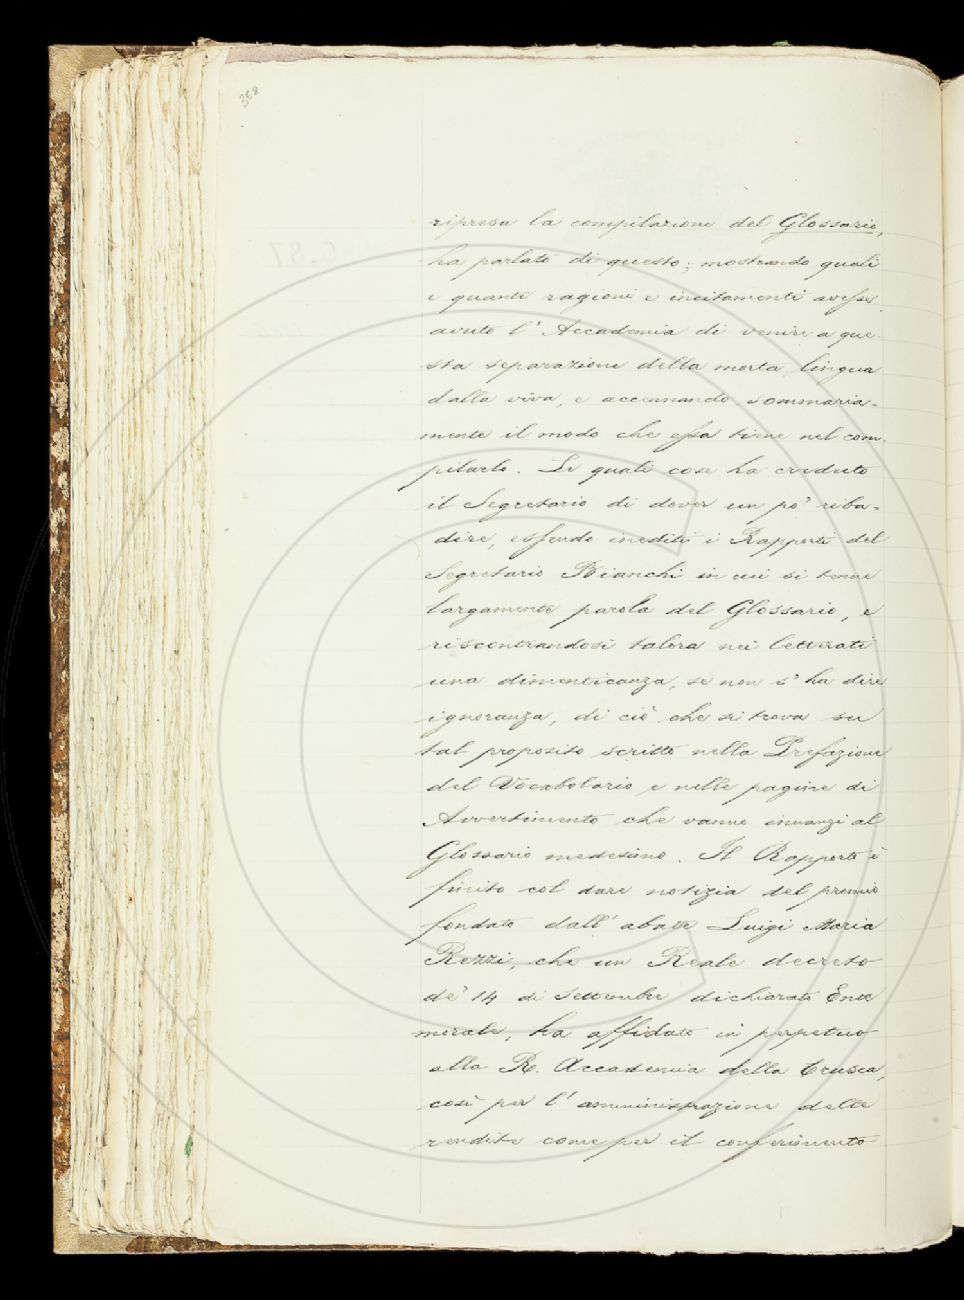 368
ripresa la compilazione del Glossario,
ha parlato di questo; mostrando quali
e quante ragioni e incitamenti avesse
avuto l' Accademia di venire a que-
sta separazione della morta lingua
dalla viva, e accennando sommaria-
mente il modo che essa tiene nel com-
pilarlo. Le quali cose ha creduto
il Segretario di dover un po' riba-
dire, essendo inediti i Rapporti del
Segretario Bianchi in cui si tenne
largamente parola del Glossario, e
riscontrandosi talora nei letterati
una dimenticanza, se non s' ha dire
ignoranza, di ciò che si trova su
tal proposito scritto nella Prefazione
del Vocabolario e nelle pagine di
Avvertimento che vanno innanzi al
Glossario medesimo. Il Rapporto è
finito col dare notizia del premio
fondato dall' abate Luigi Maria
Rezzi, che un Reale decreto
de' 14 di Settembre dichiarato Ente
morale, ha affidato in perpetuo
alla R. Accademia della Crusca,
così per l' amministrazione delle
rendite come per il conferimento